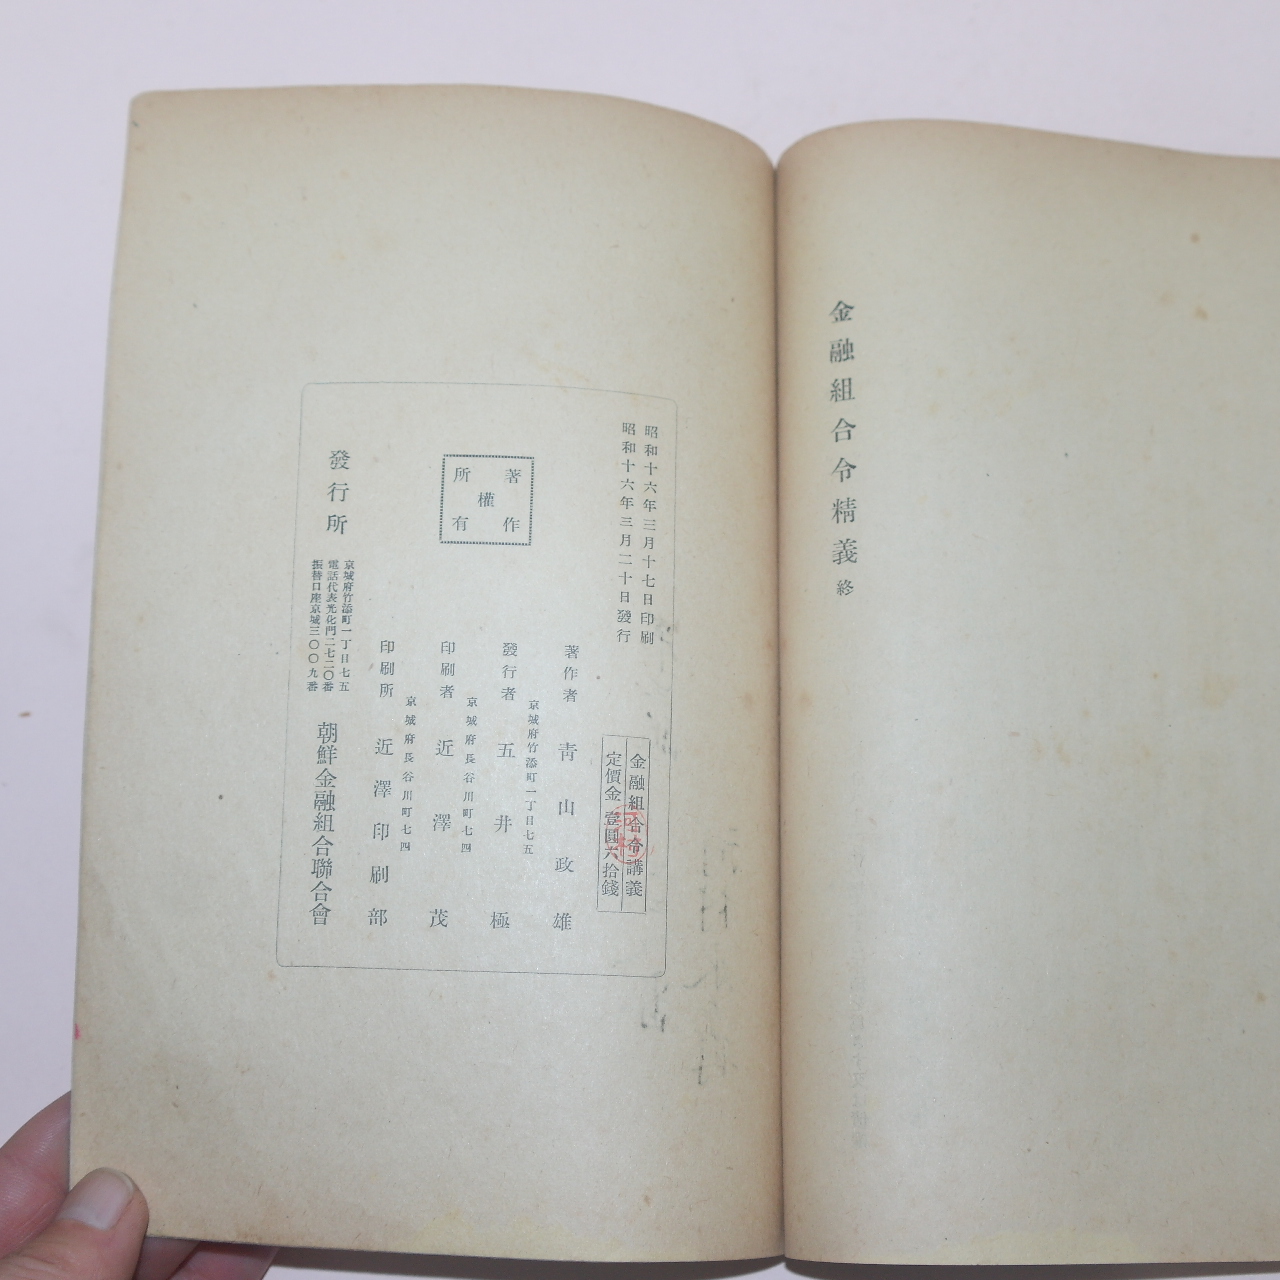 金融組合令精義 終
昭和十六年三月十七日印刷
昭和十六年三月二十日發行
金融組合令講義
定價金壹圓六拾錢
著作權所有
著作者 靑山政雄
京城府竹添町一丁目七五
發行者 五井極
京城府長谷川町七四
印刷者 近澤茂
京城府長谷川町七四
印刷所 近澤印刷部
發行所
京城府竹添町一丁目七五
電話代表光化門二七二〇番
振替口座京城三〇〇九番
朝鮮金融組合聯合會